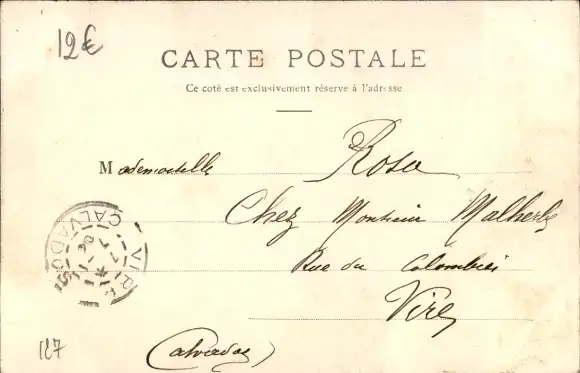 12€
CARTE POSTALE
Ce coté est exclusivement réservé à l'adresse
Mademoiselle Rosa
Chez Monsieur Malherbe
Rue du Colombier
Vire
(Calvados)
VIRE
CALVADOS
127